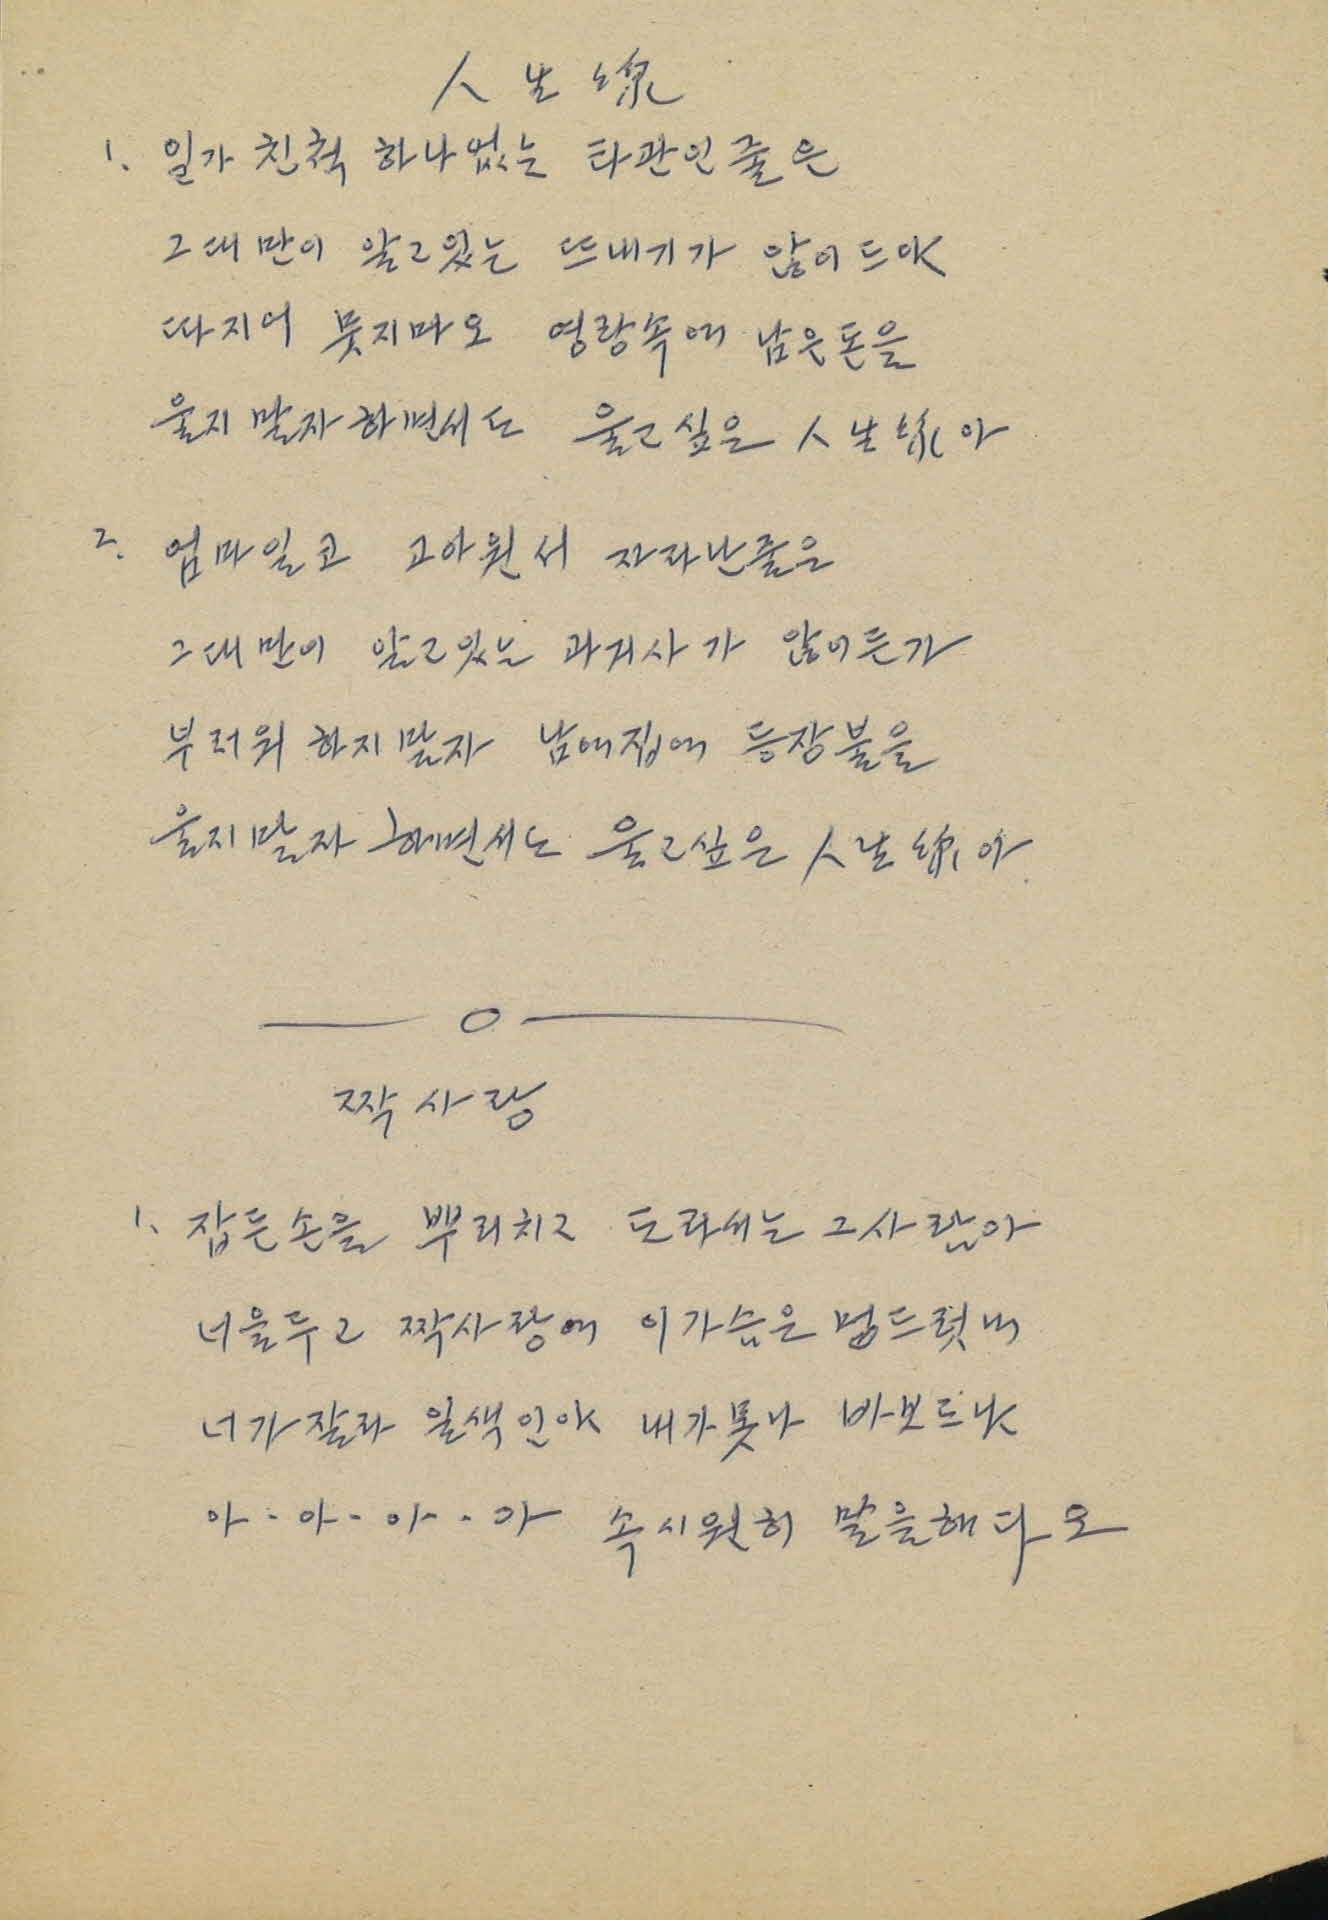 人生線
1. 일가 친척 하나없는 타관인줄은
그대만이 알고있는 뜨내기가 않이드야
따지어 뭇지마오 영랑속에 남은돈을
울지말자 하면서도 울고싶은 人生線아
2. 엄마일코 고아원서 자라난줄은
그대만이 알고있는 과거사가 않이든가
부러워 하지말자 남에집에 등장불을
울지말자 하면서도 울고싶은 人生線아
짝사랑
1. 잡은손을 뿌리치고 도라서는 그사람아
너을두고 짝사랑에 이가슴은 멍드렷네
너가잘라 일색인야 내가못나 바보드냐
아··아·아··아 속시원히 말을해다오